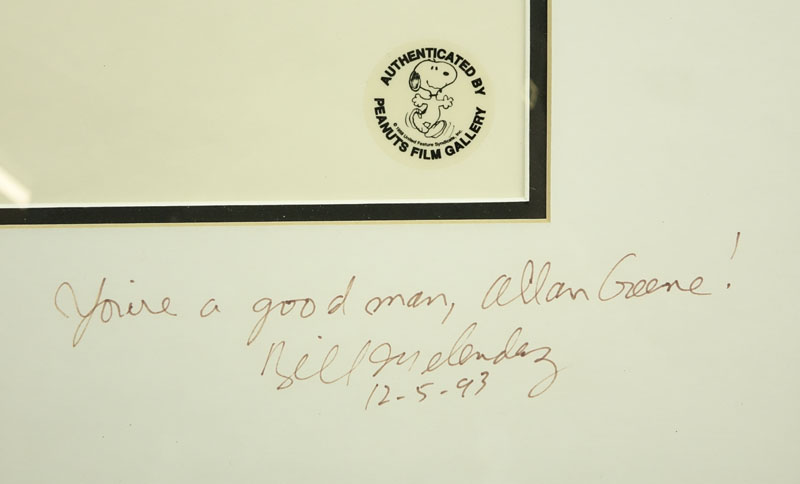 AUTHENTICATED BY
PEANUTS FILM GALLERY
© 1988 United Feature Syndicate, Inc.
You're a good man, Allan Greene!
Bill Melendez
12-5-93